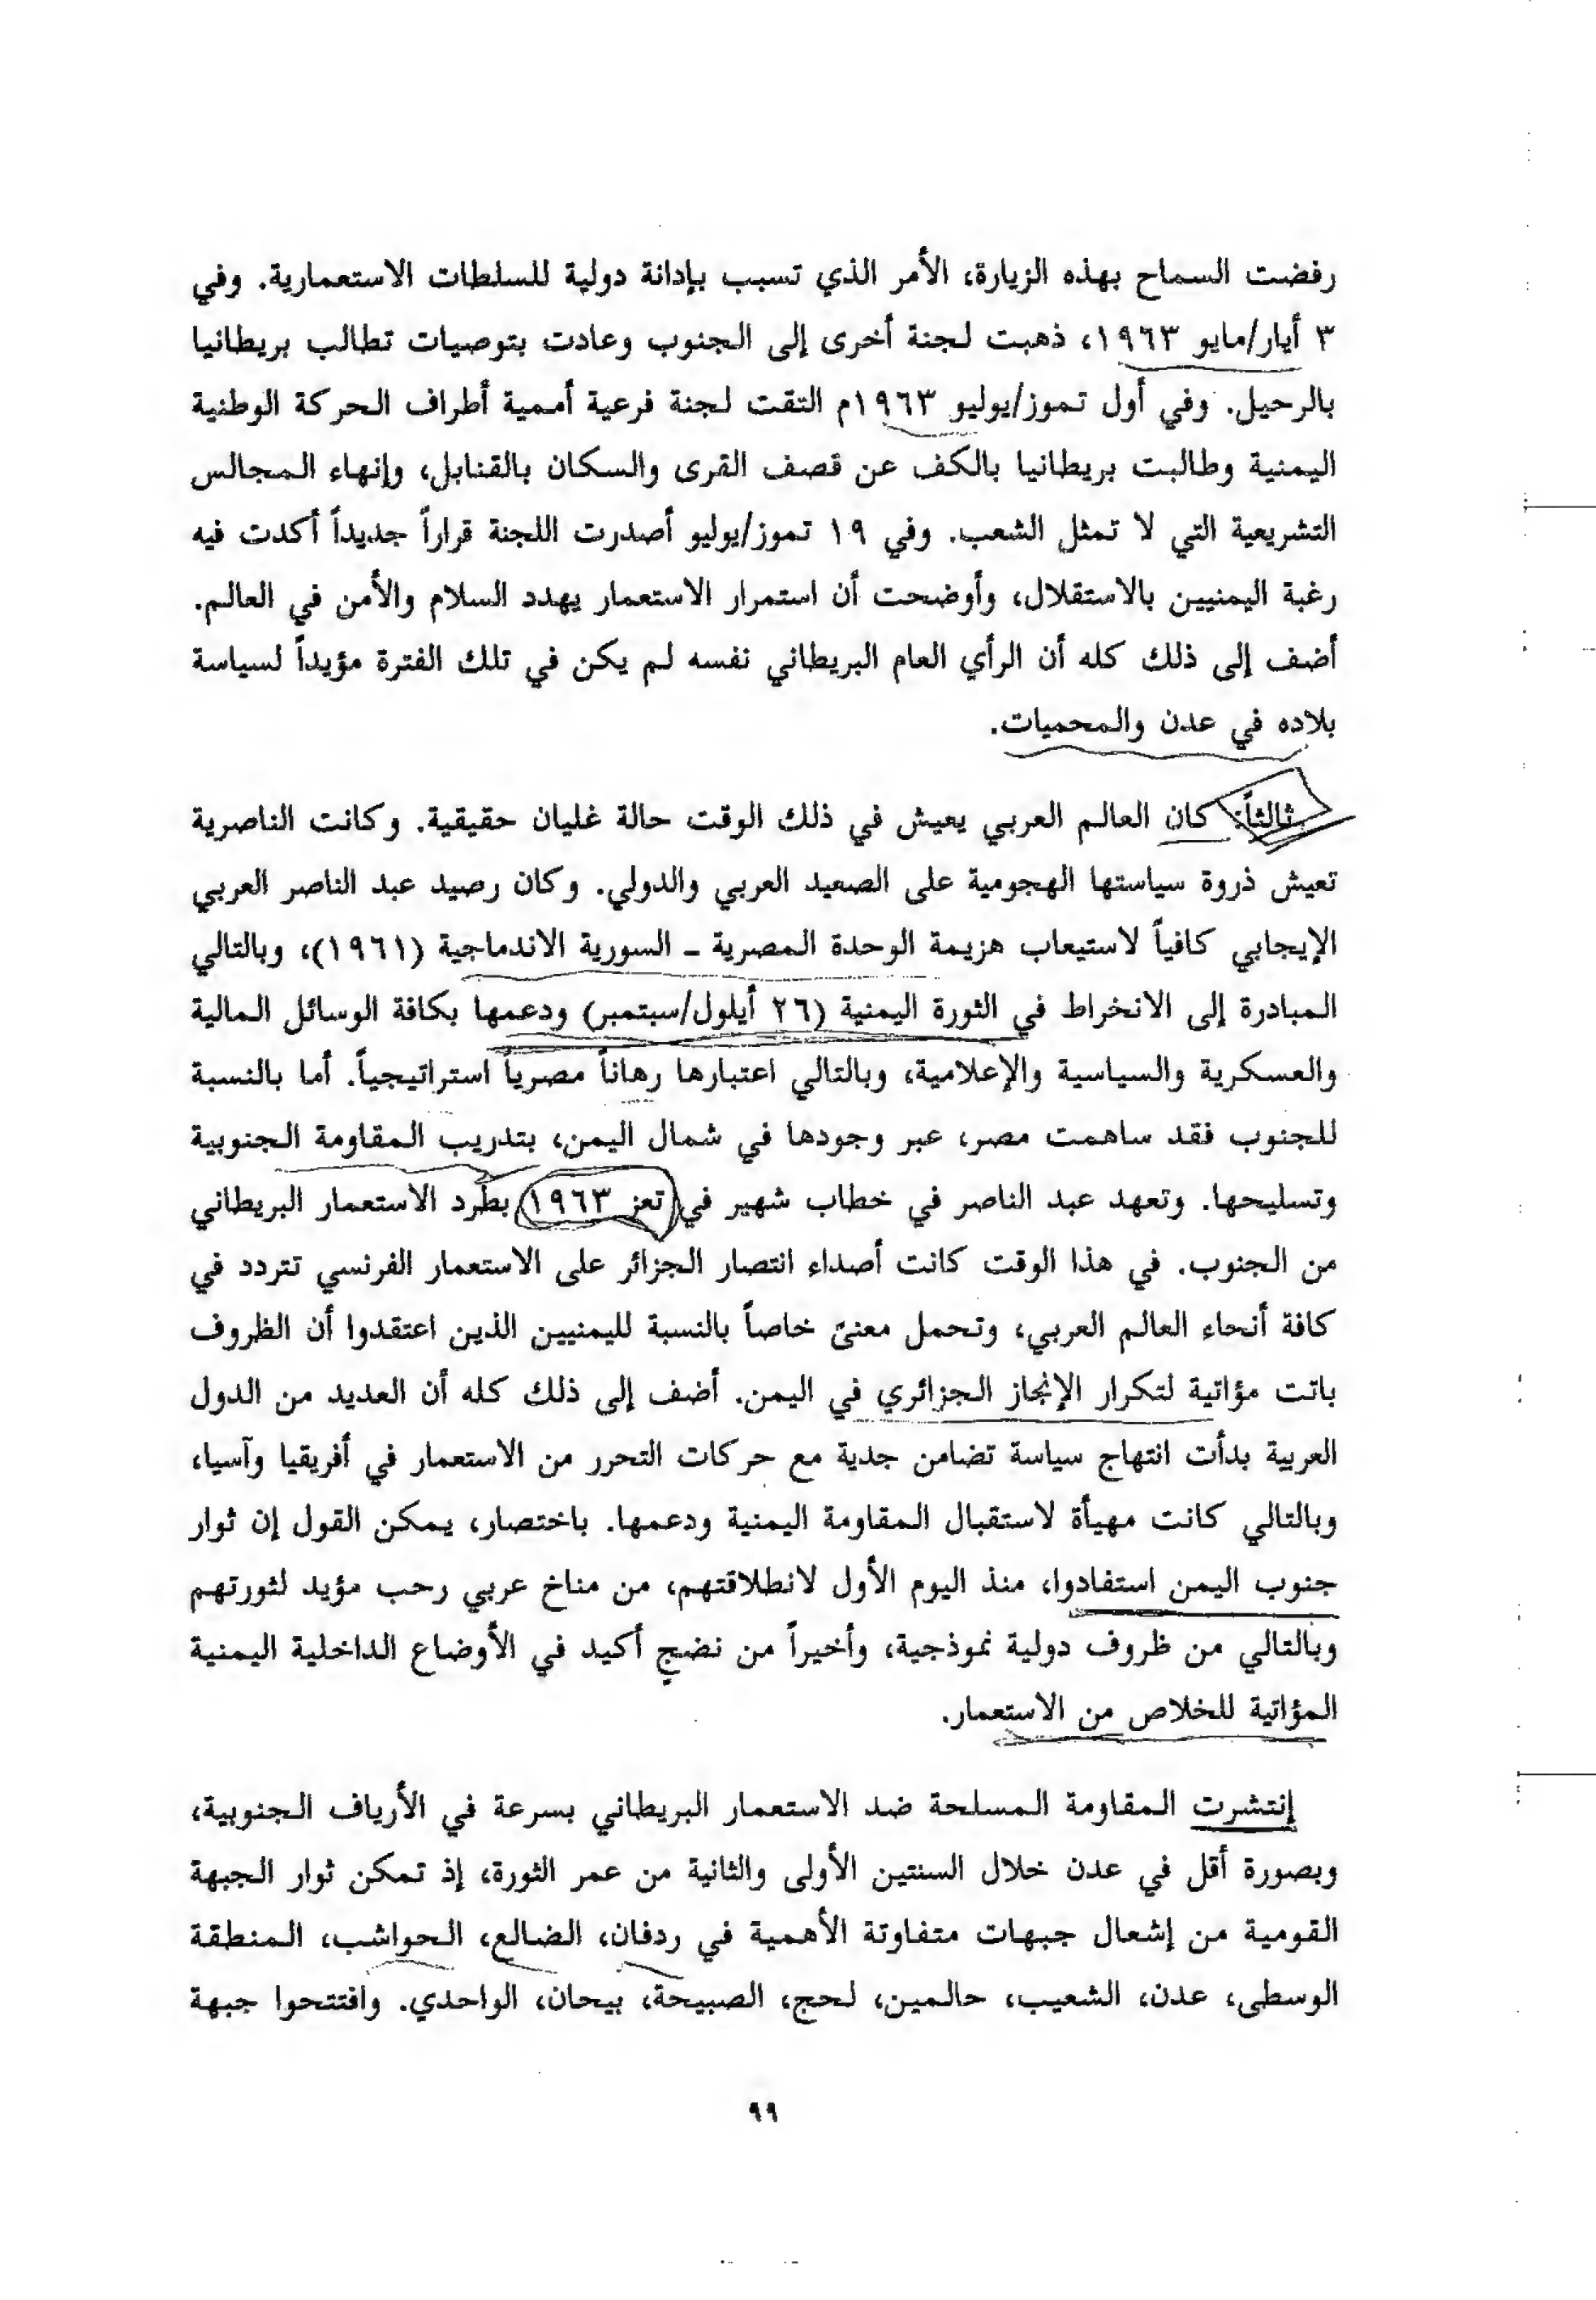 رفضت السماح بهذه الزيارة، الأمر الذي تسبب بإدانة دولية للسلطات الاستعمارية. وفي
٣ أيار/مايو ١٩٦٣، ذهبت لجنة أخرى إلى الجنوب وعادت بتوصيات تطالب بريطانيا
بالرحيل. وفي أول تموز/يوليو ١٩٦٣م التقت لجنة فرعية أممية أطراف الحركة الوطنية
اليمنية وطالبت بريطانيا بالكف عن قصف القرى والسكان بالقنابل، وإنهاء المجالس
التشريعية التي لا تمثل الشعب. وفي ١٩ تموز/يوليو أصدرت اللجنة قراراً جديداً أكدت فيه
رغبة اليمنيين بالاستقلال، وأوضحت أن استمرار الاستعمار يهدد السلام والأمن في العالم.
أضف إلى ذلك كله أن الرأي العام البريطاني نفسه لم يكن في تلك الفترة مؤيداً لسياسة
بلاده في عدن والمحميات.
ثالثاً: كان العالم العربي يعيش في ذلك الوقت حالة غليان حقيقية. وكانت الناصرية
تعيش ذروة سياستها الهجومية على الصعيد العربي والدولي. وكان رصيد عبد الناصر العربي
الإيجابي كافياً لاستيعاب هزيمة الوحدة المصرية - السورية الاندماجية (١٩٦١)، وبالتالي
المبادرة إلى الانخراط في الثورة اليمنية (٢٦ أيلول/سبتمبر) ودعمها بكافة الوسائل المالية
والعسكرية والسياسية والإعلامية، وبالتالي اعتبارها رهاناً مصرياً استراتيجياً. أما بالنسبة
للجنوب فقد ساهمت مصر، عبر وجودها في شمال اليمن، بتدريب المقاومة الجنوبية
وتسليحها. وتعهد عبد الناصر في خطاب شهير في تعز ١٩٦٣ بطرد الاستعمار البريطاني
من الجنوب. في هذا الوقت كانت أصداء انتصار الجزائر على الاستعمار الفرنسي تتردد في
كافة أنحاء العالم العربي، وتحمل معنىً خاصاً بالنسبة لليمنيين الذين اعتقدوا أن الظروف
باتت مؤاتية لتكرار الإنجاز الجزائري في اليمن. أضف إلى ذلك كله أن العديد من الدول
العربية بدأت انتهاج سياسة تضامن جدية مع حركات التحرر من الاستعمار في أفريقيا وآسيا،
وبالتالي كانت مهيأة لاستقبال المقاومة اليمنية ودعمها. باختصار، يمكن القول إن ثوار
جنوب اليمن استفادوا، منذ اليوم الأول لانطلاقتهم، من مناخ عربي رحب مؤيد لثورتهم
وبالتالي من ظروف دولية نموذجية، وأخيراً من نضجٍ أكيد في الأوضاع الداخلية اليمنية
المؤاتية للخلاص من الاستعمار.
إنتشرت المقاومة المسلحة ضد الاستعمار البريطاني بسرعة في الأرياف الجنوبية،
وبصورة أقل في عدن خلال السنتين الأولى والثانية من عمر الثورة، إذ تمكن ثوار الجبهة
القومية من إشعال جبهات متفاوتة الأهمية في ردفان، الضالع، الحواشب، المنطقة
الوسطى، عدن، الشعيب، حالمين، لحج، الصبيحة، بيحان، الواحدي. وافتتحوا جبهة
٩٩